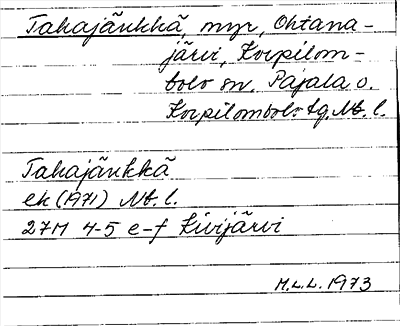 Tahajänkkä, myr, Ohtana-
järvi, Korpilom-
bolo sn. Pajala o.
Korpilombolo tg. Nb. l.
Tahajänkkä
ek (1971) Nb. l.
27M 4-5 e-f Kivijärvi
M.L.L. 1973